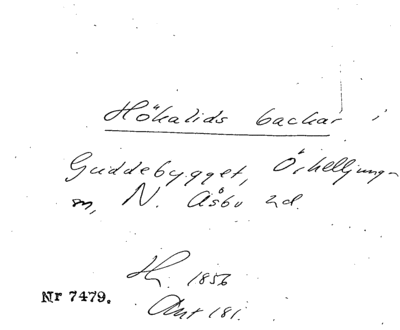 Hökalids backar i
Guddebygget, Örkelljung-
m, N. Åsbo hd.
H. 1856
Ant 181.
Nr 7479.